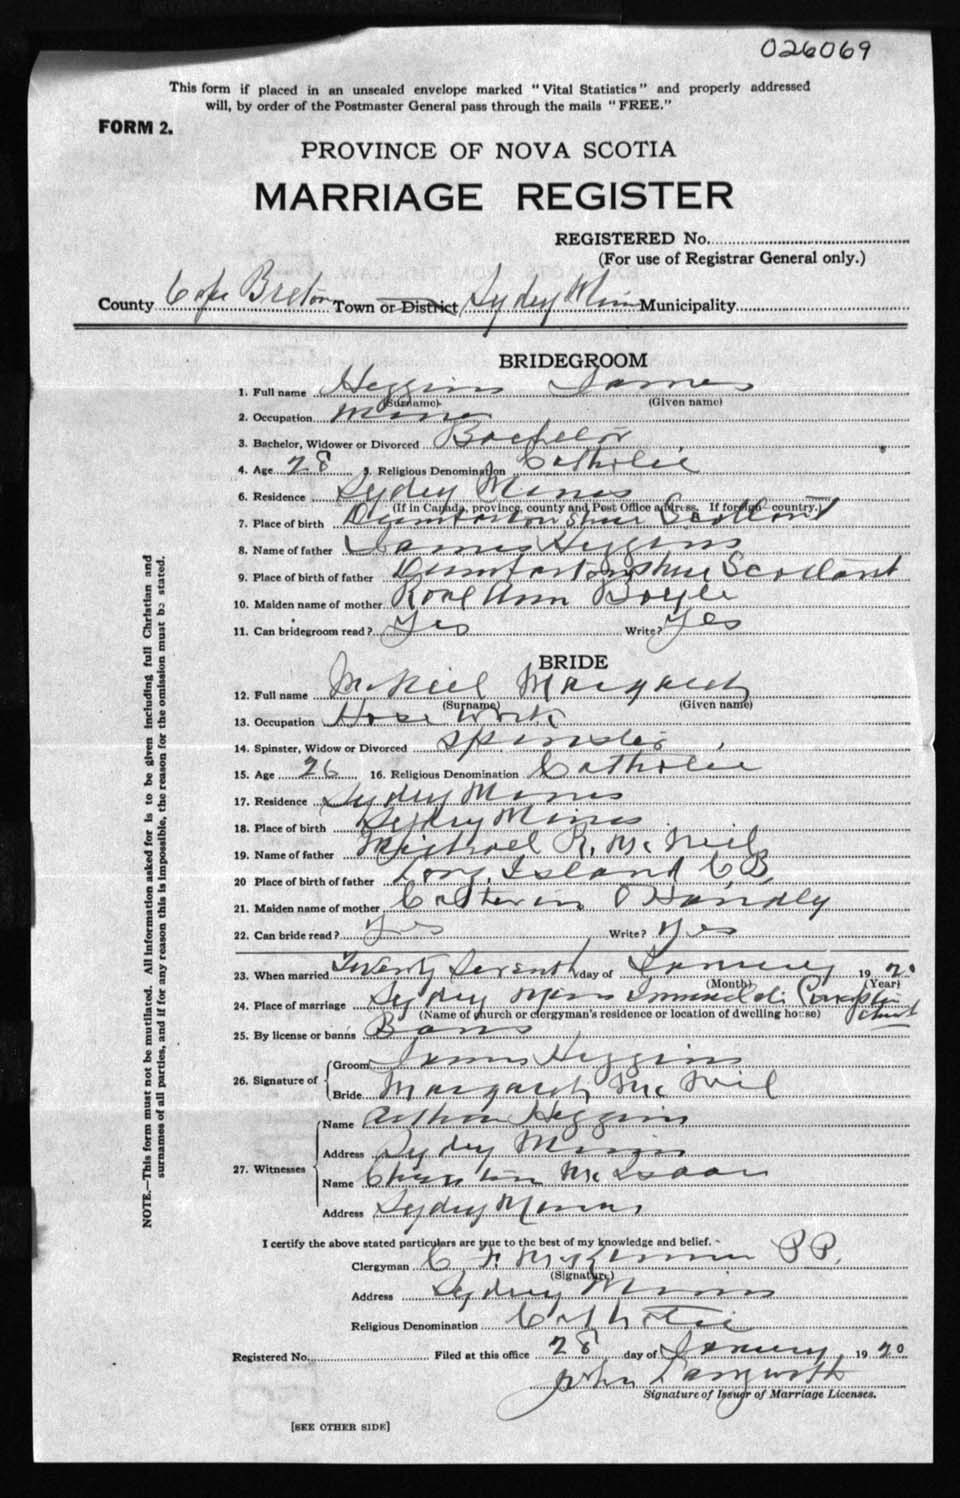 026069
This form if placed in an unsealed envelope marked "Vital Statistics" and properly addressed
will, by order of the Postmaster General pass through the mails "FREE."
FORM 2.
PROVINCE OF NOVA SCOTIA
MARRIAGE REGISTER
REGISTERED No.
(For use of Registrar General only.)
County Cape Breton Town or District Sydney Mines Municipality
BRIDEGROOM
1. Full name Heggins James
(Surname) (Given name)
2. Occupation Miner
3. Bachelor, Widower or Divorced Bachelor
4. Age 28 5. Religious Denomination Catholic
6. Residence Sydney Mines
(If in Canada, province, county and Post Office address. If foreign country.)
7. Place of birth Dumbartonshire Scotland
8. Name of father James Heggins
9. Place of birth of father Dumbartonshire Scotland
10. Maiden name of mother Ann Boyle
11. Can bridegroom read? Yes Write? Yes
BRIDE
12. Full name McNeil Margaret
(Surname) (Given name)
13. Occupation Hose Work
14. Spinster, Widow or Divorced Spinster
15. Age 26 16. Religious Denomination Catholic
17. Residence Sydney Mines
18. Place of birth Sydney Mines
19. Name of father Michael R. McNeil
20 Place of birth of father Long Island C.B.
21. Maiden name of mother Catherin O Handly
22. Can bride read? Yes Write? Yes
23. When married Twenty Seventh day of January 1920
(Month) (Year)
24. Place of marriage Sydney Mines Immaculate Conception Church
(Name of church or clergyman's residence or location of dwelling house)
25. By license or banns Bans
26. Signature of Groom James Heggins
Bride Margaret McNeil
27. Witnesses Name Arthur Heggins
Address Sydney Mines
Name McIsaac
Address Sydney Mines
I certify the above stated particulars are true to the best of my knowledge and belief.
Clergyman C F McKinnon P P.
(Signature)
Address Sydney Mines
Religious Denomination Catholic
Registered No. Filed at this office 28 day of January 1920
John Langworth
Signature of Issuer of Marriage Licenses.
[SEE OTHER SIDE]
NOTE.—This form must not be mutilated. All information asked for is to be given including full Christian and
surnames of all parties, and if for any reason this is impossible, the reason for the omission must be stated.